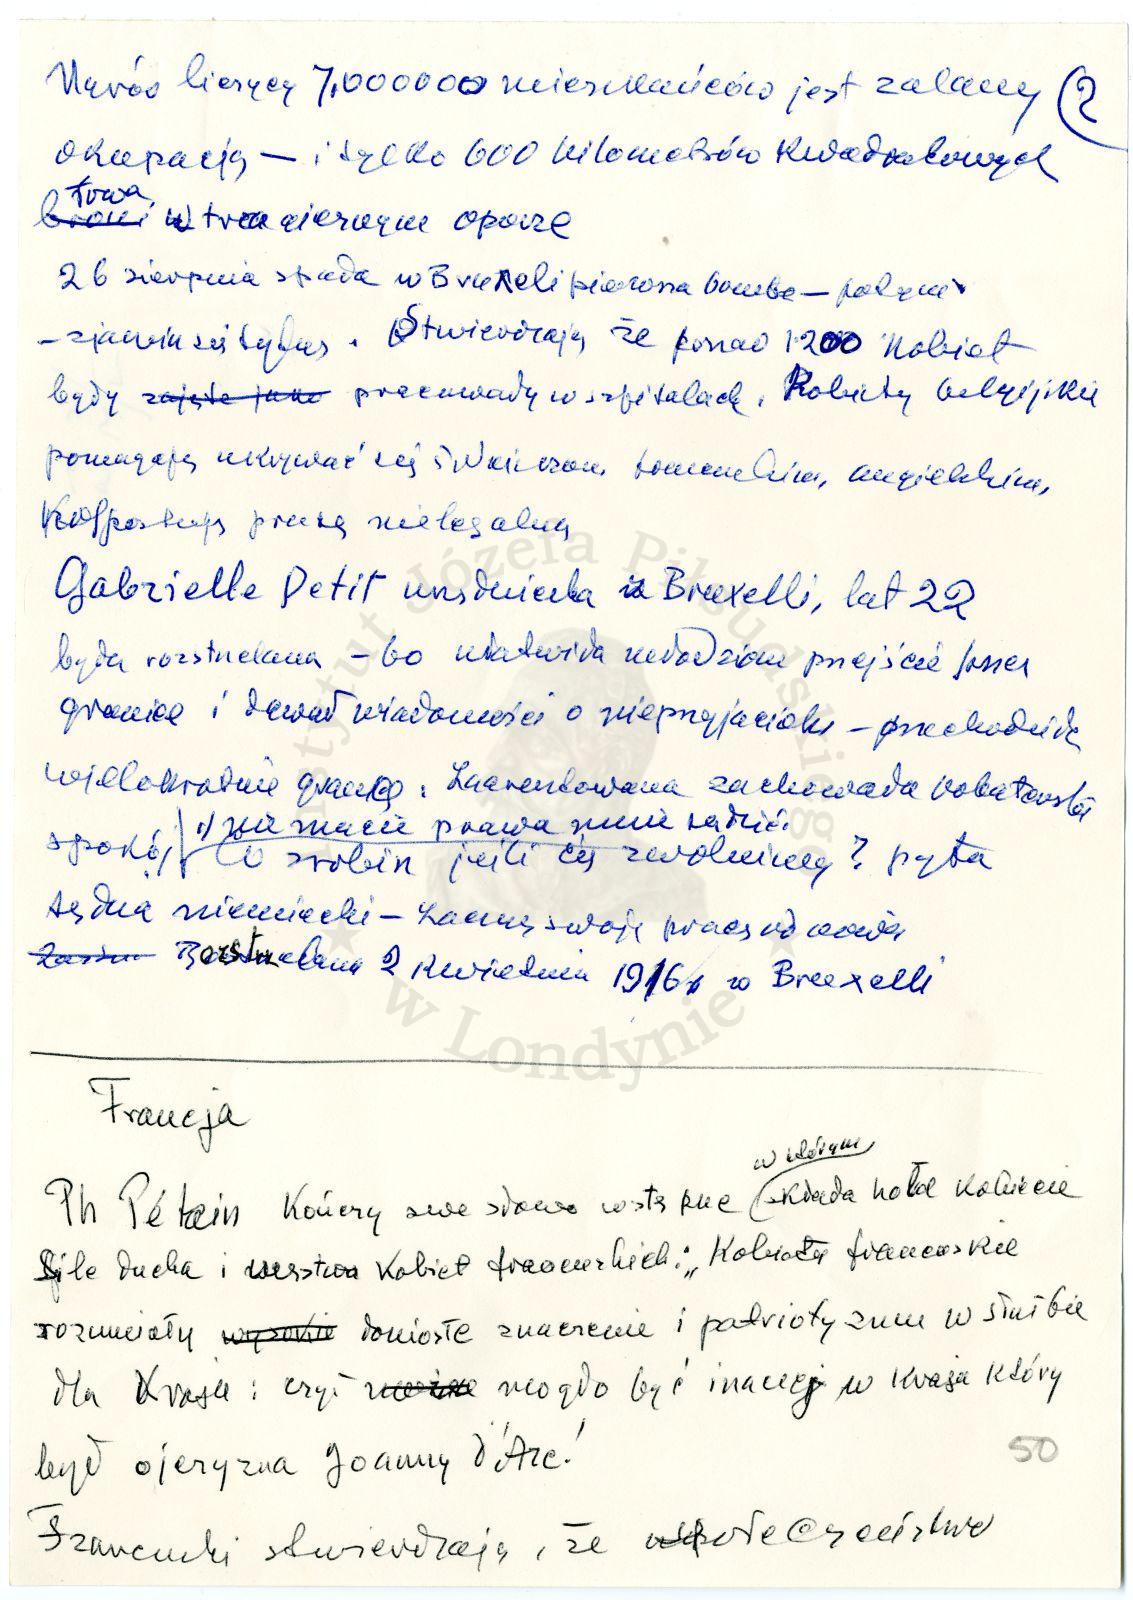 Naród liczący 7,000000 mieszkańców jest zalany (2
okupacją — i tylko 600 kilometrów kwadratowych
trwa
broni w trwa oporze
26 sierpnia spada w Bruxeli pierwsza bomba — potym
— zjawia się tyfus. Stwierdzają że ponad 1200 kobiet
były zajęte jako pracowały w szpitalach. Kobiety belgijskie
pomagają ukrywać się żołnierzom francuskim, angielskim,
kolportują prasę nielegalną
Gabrielle Petit urzędniczka z Bruxelli, lat 22
była rozstrzelana — bo ułatwiła młodzieży przejście przez
granicę i dawał wiadomości o nieprzyjacielu — przechodziła
wielokrotnie granicę. Zaaresztowana zachowała bohaterski
spokój „nie macie prawa mnie sądzić
Co zrobisz jeśli cię zwolnimy? pyta
sędzia niemiecki — Zacznę swoją pracę od nowa
Rozstrzelana 2 kwietnia 1916 r w Bruxelli
Francja
w którym
Ph Pétain kończy swe słowo wstępne składa hołd kobiecie
sile ducha i kobiet francuskich: „Kobiety francuskie
rozumiały wysokie doniosłe znaczenie i patriotyzm w służbie
dla Kraju: czyż można mogło być inaczej w kraju który
był ojczyzna Joanny d'Arc!
50
Francuski stwierdzają, że społeczeństwo
Instytut Józefa Piłsudskiego
w Londynie